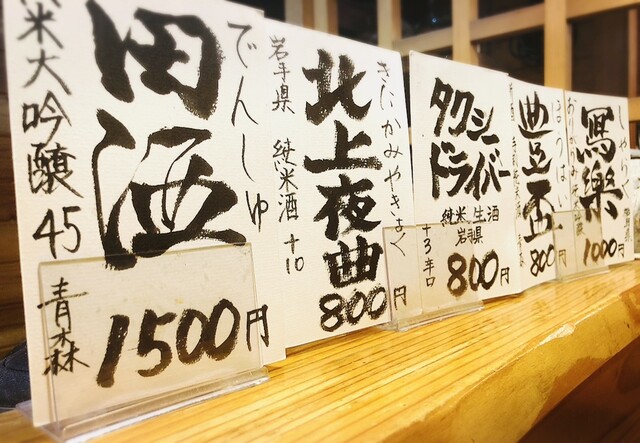 でんしゅ
田酒
純米大吟醸 45
青森
1500円
きたかみやきょく
北上夜曲
岩手県 純米酒 +10
800円
タクシー
ドライバー
純米生酒
岩手県
+3 辛口
800円
豊盃
800円
しゃらく
寫樂
1000円